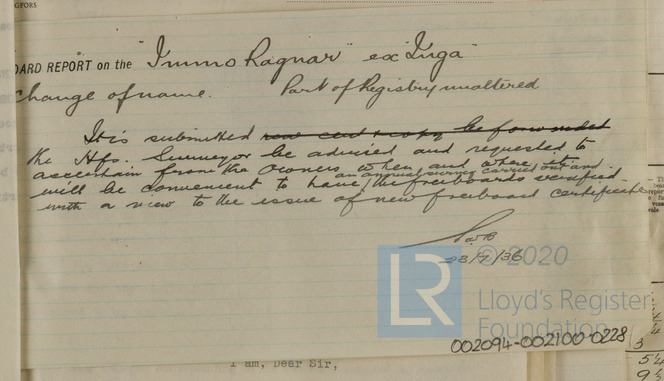 GFORS
OARD REPORT on the "Immo Ragnar" ex "Inga"
Change of name. Port of Registry unaltered
It is submitted new cert copy be forwarded
the Hfs. Surveyor be advised and requested to
ascertain from the Owners when and where it
an annual survey carried out and
will be convenient to have the freeboards verified
with a view to the issue of new freeboard certificate
23/7/36
LR
© 2020
Lloyd's Register
Foundation
002094-002100-0228
I am, Dear Sir,
3
54